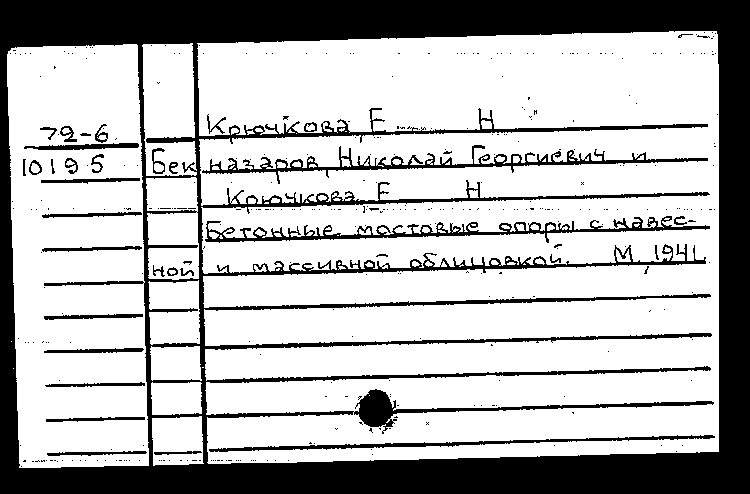 Крючкова, Е Н
72-6
10195 Бекназаров, Николай Георгиевич и
Крючкова, Е Н
Бетонные мостовые опоры с навес-
ной и массивной облицовкой. М, 1941.